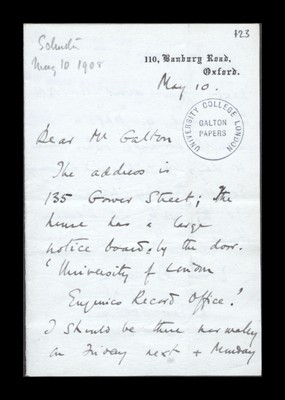 123
Schuster
May 10 1908
110, Banbury Road,
Oxford.
May 10.
UNIVERSITY COLLEGE LONDON
GALTON
PAPERS
Dear Mr Galton
The address is
135 Gower Street; the
house has a large
notice board by the door.
'University of London
Eugenics Record Office.'
I should be there normaley
on Friday next + Monday